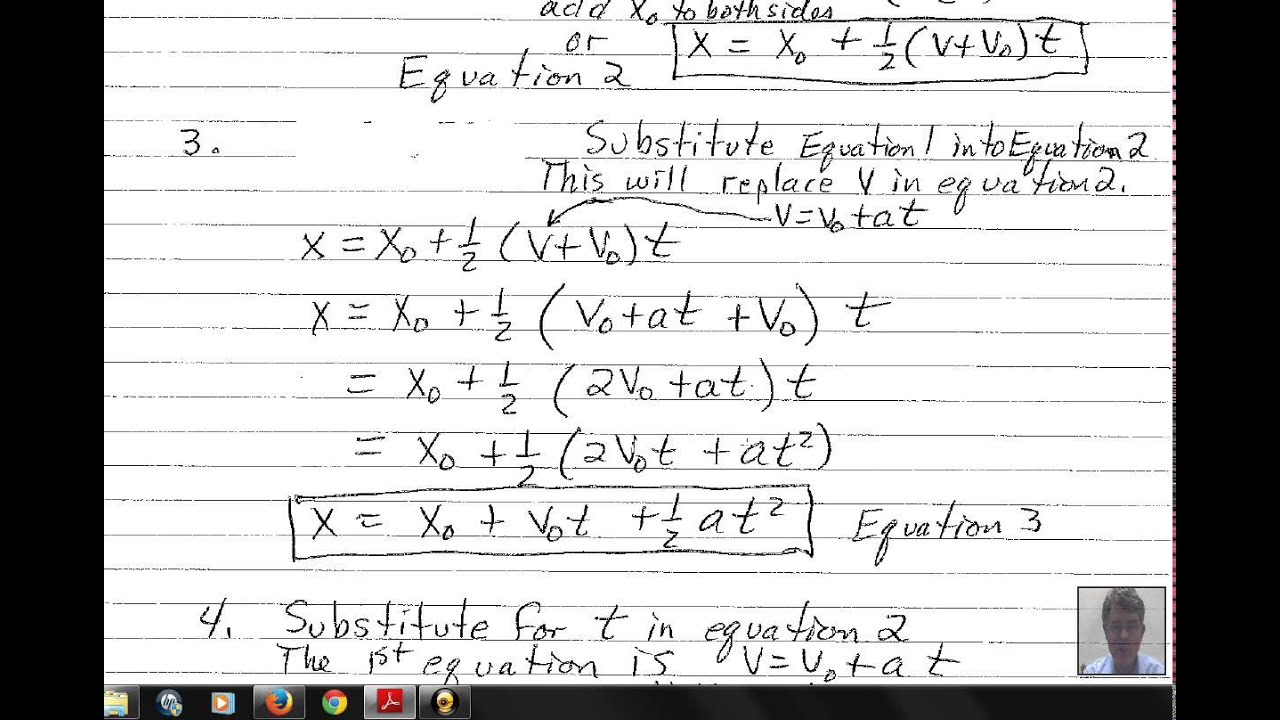 add X₀ to both sides
or
X = X₀ + ½(V+V₀)t
Equation 2
3.
Substitute Equation 1 into Equation 2
This will replace V in equation 2.
V=V₀+at
X = X₀+½(V+V₀)t
X = X₀ + ½(V₀+at +V₀) t
= X₀ + ½(2V₀+at)t
= X₀ + ½(2V₀t +at²)
X = X₀ + V₀t +½at² Equation 3
4. Substitute for t in equation 2
The 1st equation is V=V₀+at